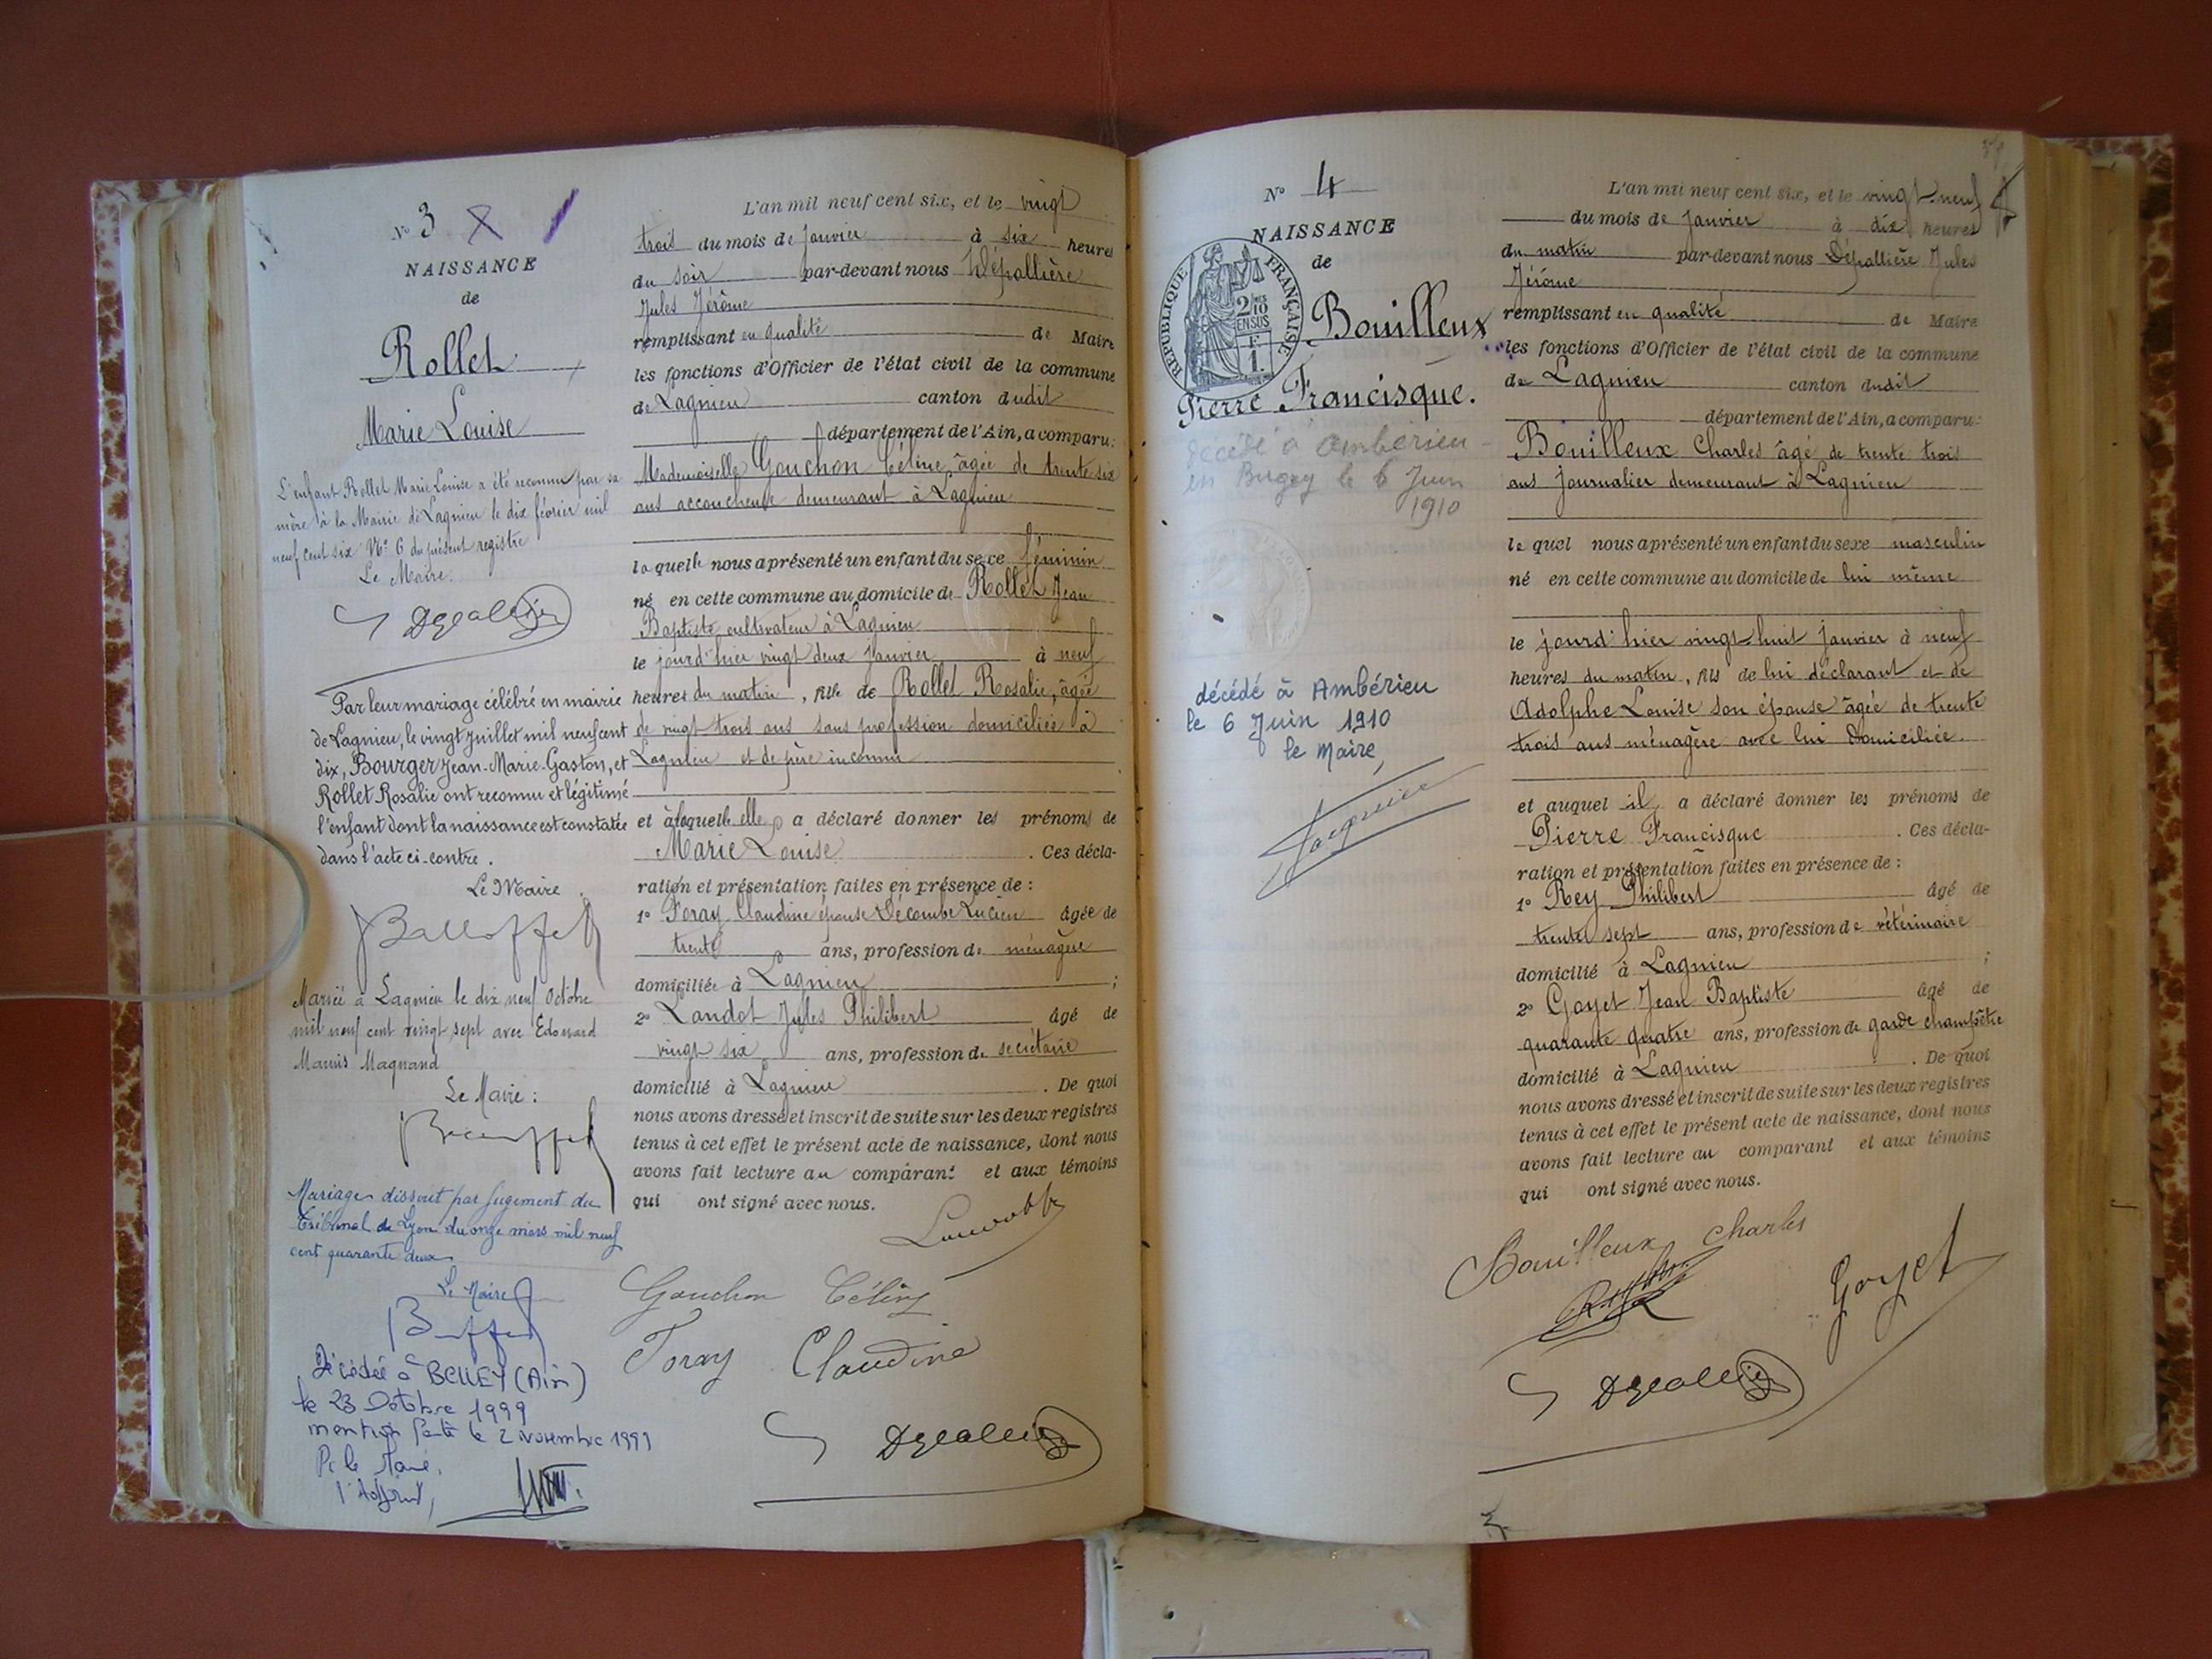 N° 3
NAISSANCE
de
Rollet
Marie Louise
L'enfant Rollet Marie Louise a été reconnu par sa
mère à la Mairie de Lagnieu le dix février mil
neuf cent six N° 6 du présent registre
Le Maire.
Par leur mariage célébré en mairie
de Lagnieu, le vingt juillet mil neuf cent
dix, Bourger Jean-Marie-Gaston, et
Rollet Rosalie ont reconnu et légitimé
l'enfant dont la naissance est constatée
dans l'acte ci-contre.
Le Maire
Mariée à Lagnieu le dix neuf Octobre
mil neuf cent vingt sept avec Edouard
Marius Magnand
Le Maire :
Mariage dissout par jugement du
Tribunal de Lyon du onze mars mil neuf
cent quarante deux
Le Maire
Décédée à BELLEY (Ain)
le 23 Octobre 1999
mention faite le 2 novembre 1999
P. le Maire,
l'Adjoint,
L'an mil neuf cent six, et le vingt
trois du mois de Janvier à six heures
du soir par-devant nous Dépallière
Jules Jérôme
remplissant en qualité de Maire
les fonctions d'Officier de l'état civil de la commune
de Lagnieu canton dudit
département de l'Ain, a comparu:
Mademoiselle Gouchon Céline, âgée de trente six
ans accoucheuse demeurant à Lagnieu
laquelle nous a présenté un enfant du sexe féminin
né en cette commune au domicile de Rollet Jean
Baptiste cultivateur à Lagnieu
le jourd'hier vingt deux Janvier à neuf
heures du matin, fille de Rollet Rosalie, âgée
de vingt trois ans sans profession domiciliée à
Lagnieu et de père inconnu
et à laquelle elle a déclaré donner les prénoms de
Marie Louise. Ces décla-
ration et présentation faites en présence de :
1° Foray Claudine épouse Décombe Lucien âgée de
trente ans, profession de ménagère
domiciliée à Lagnieu ;
2° Landot Jules Philibert âgé de
vingt six ans, profession de secrétaire
domicilié à Lagnieu. De quoi
nous avons dressé et inscrit de suite sur les deux registres
tenus à cet effet le présent acte de naissance, dont nous
avons fait lecture au comparant et aux témoins
qui ont signé avec nous.
Gouchon Céline
Foray Claudine
N° 4
NAISSANCE
de
RÉPUBLIQUE FRANÇAISE
2/10
EN SUS
F.
1.
Bouilleux
Pierre Francisque.
décédé à Ambérieu-
en Bugey le 6 Juin
1910
décédé à Ambérieu
le 6 Juin 1910
le Maire,
L'an mil neuf cent six, et le vingt-neuf
du mois de Janvier à dix heures
du matin par-devant nous Dépallière Jules
Jérôme
remplissant en qualité de Maire
les fonctions d'Officier de l'état civil de la commune
de Lagnieu canton dudit
département de l'Ain, a comparu:
Bouilleux Charles âgé de trente trois
ans Journalier demeurant à Lagnieu
lequel nous a présenté un enfant du sexe masculin
né en cette commune au domicile de lui même
le jourd'hier vingt-huit Janvier à neuf
heures du matin, fils de lui déclarant et de
Adolphe Louise son épouse âgée de trente
trois ans ménagère avec lui Domiciliée.
et auquel il a déclaré donner les prénoms de
Pierre Francisque. Ces décla-
ration et présentation faites en présence de :
1° Rey Philibert âgé de
trente sept ans, profession de vétérinaire
domicilié à Lagnieu ;
2° Goyet Jean Baptiste âgé de
quarante quatre ans, profession de garde champêtre
domicilié à Lagnieu. De quoi
nous avons dressé et inscrit de suite sur les deux registres
tenus à cet effet le présent acte de naissance, dont nous
avons fait lecture au comparant et aux témoins
qui ont signé avec nous.
Bouilleux Charles
Goyet